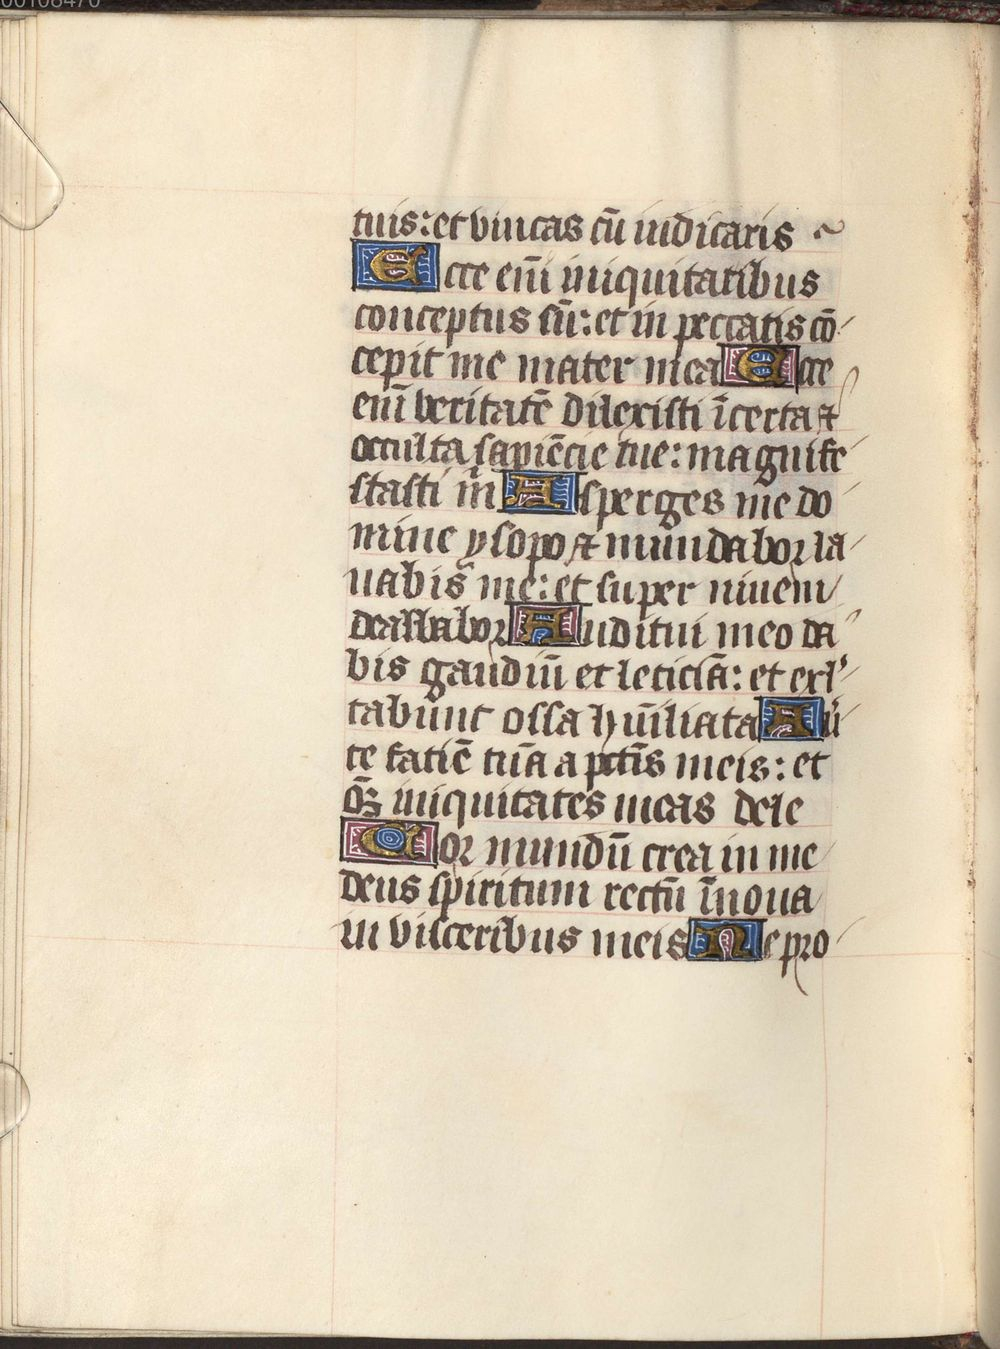 tuis: et vincas cū iudicaris ~
Ecce eni̅ iniquitatibus
conceptus su̅: et in peccatis co̅
cepit me mater mea Ecce
eni̅ veritate̅ dilexisti i̅certa ⁊
occulta sapie̅cie tue: magnife
stasti m Asperges me do
mine ysopo ⁊ mundabor la
uabis me: et super niuem
dealbabor Auditui meo da
bis gaudiu̅ et leticia̅: et exl'
tabunt ossa hu̅iliata Au̅
te facie̅ tua̅ a pcti̅s meis: et
iniquitates meas dele
Cor mundu̅ crea in me
deus spiritum rectu̅ i̅noua
in visceribus meis Ne pro